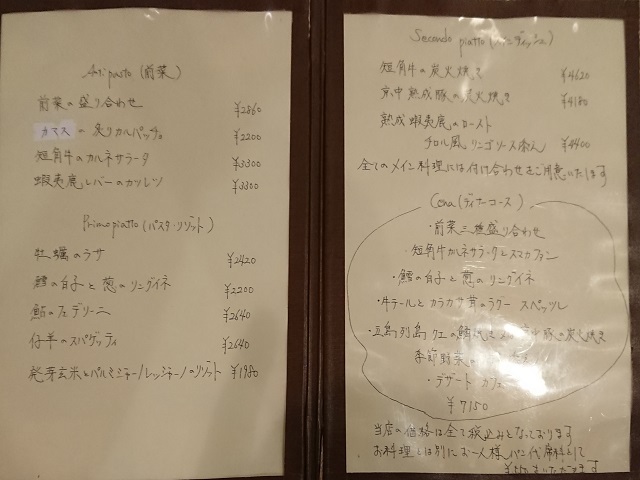 Antipasto (前菜)
前菜の盛り合わせ ¥2860
カマスの炙りカルパッチョ ¥2200
短角牛のカルネサラータ ¥3300
蝦夷鹿レバーのカツレツ ¥3300
Primo piatto (パスタ・リゾット)
牡蠣のラサ ¥2420
鱈の白子と葱のリングイネ ¥2200
鮎のフェデリーニ ¥2640
仔羊のスパゲッティ ¥2640
発芽玄米とパルミジャーノレッジャーノのリゾット ¥1980
Secondo piatto (メインディッシュ)
短角牛の炭火焼き ¥4620
京中熟成豚の炭火焼き ¥4180
熟成蝦夷鹿のロースト
チロル風 リンゴソース添え ¥4400
全てのメイン料理には付け合わせをご用意いたします
Cena (ディナーコース)
・前菜三種盛り合わせ
・短角牛カルネサラータとスカファン
・鱈の白子と葱のリングイネ
・牛テールとカラカサ茸のラグー スペッツレ
・五島列島クエの鱗焼き 豚の炭火焼き
季節野菜の
・デザート カフェ
¥7150
当店の価格は全て税込みとなっております
お料理とは別にお一人様パン代席料として